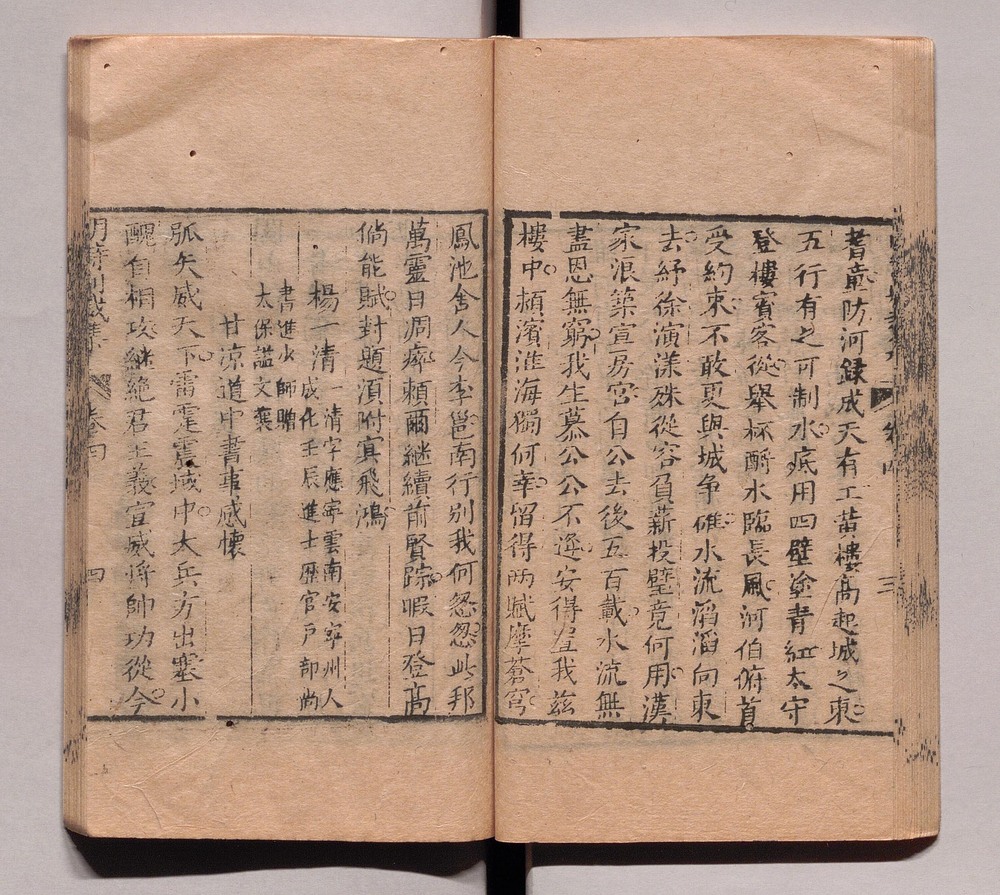 耆童防河録成天有工黄樓髙起城之東
五行有之可制水底用四壁塗青紅太守
登樓賓客從舉杯酹水臨長風河伯俯首
受約束不敢更與城争碓水流滔滔向東
去紆徐演漾殊從容負薪投璧竟何用漢
家浪築宣房宮自公去後五百載水流無
盡恩無窮我生慕公公不逢安得置我兹
樓中頫濱淮海獨何幸留得兩賦摩蒼穹
鳳池舍人今李邕南行别我何怱怱此邦
萬靈日凋瘁頼爾継續前賢踪暇日登髙
倘能賦封題須附寘飛鴻
楊一清一清字應寧雲南安寧州人
成化壬辰進士歴官戸部尚
書進少師贈
太保謚文襄
甘凉道中書事感懷
弧矢威天下雷霆震域中大兵方出塞小
醜自相攻継絶君王義宣威将帥功從今
明詩别裁集
卷四
四